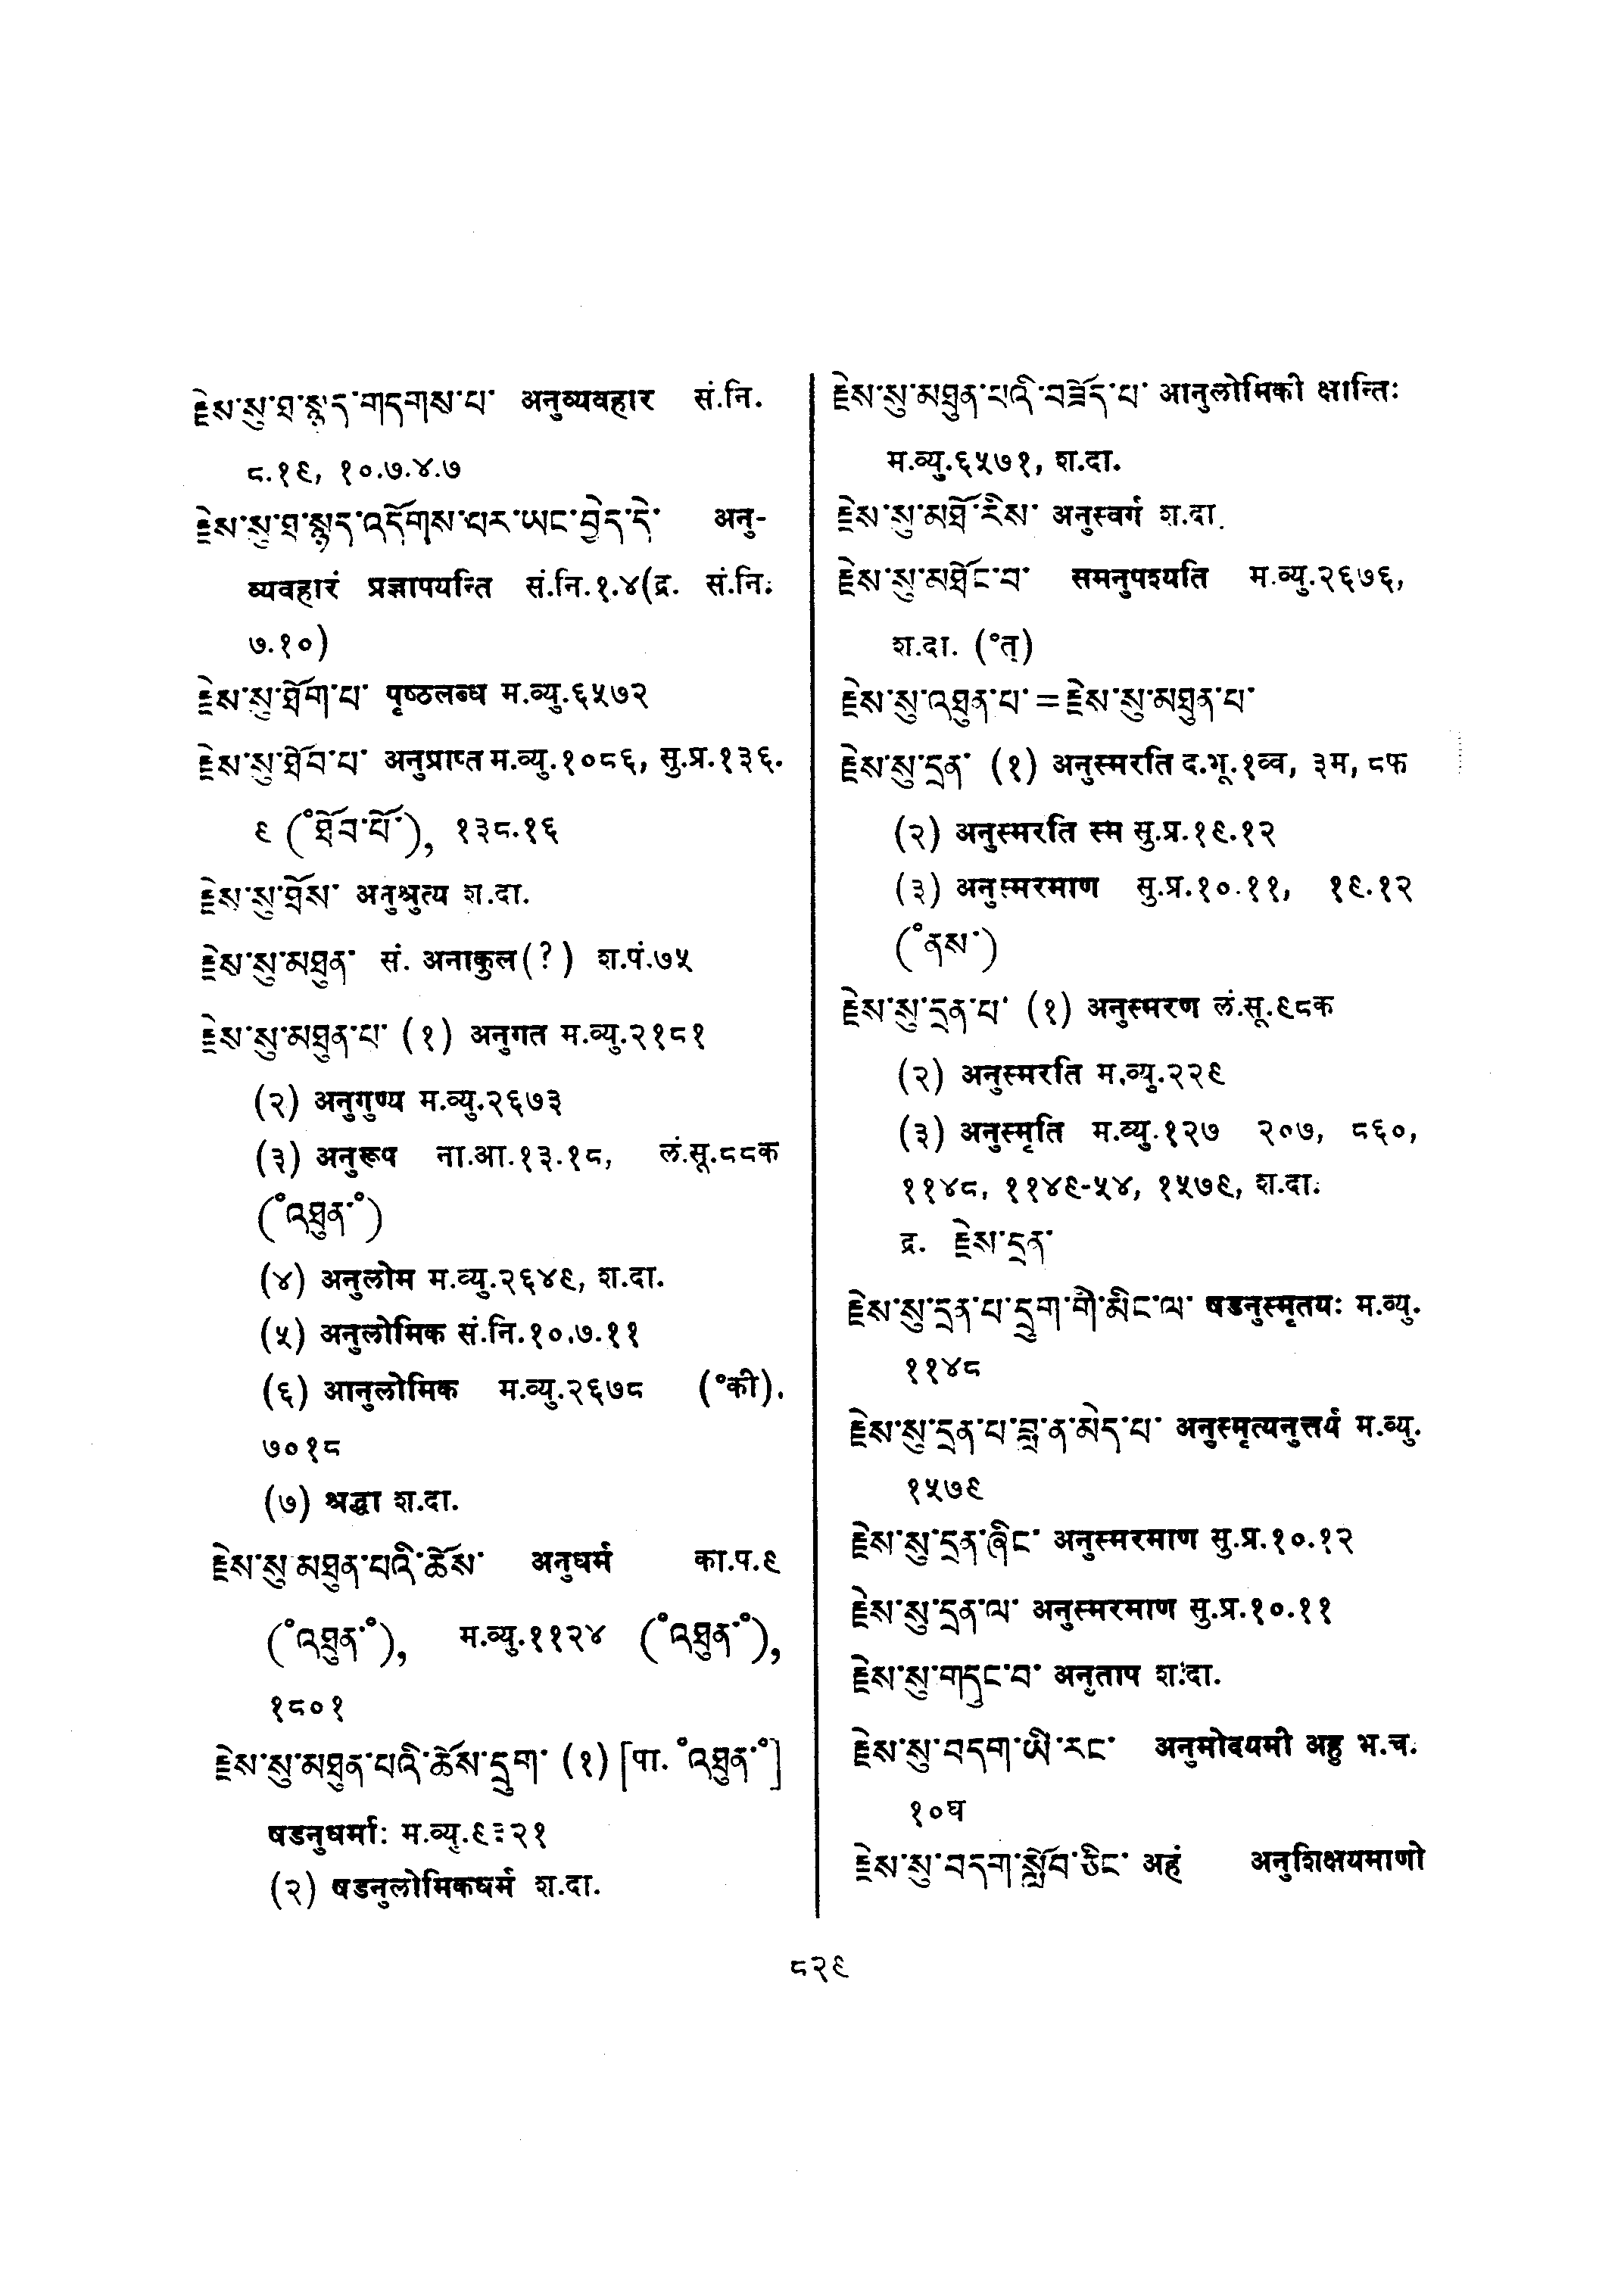 རྗེས་སུ་ཐ་སྙད་གདགས་པ་ अनुव्यवहार सं.नि.
८.१९, १०.७.४.७
རྗེས་སུ་ཐ་སྙད་འདོགས་པར་ཡང་བྱེད་དེ་ अनु-
व्यवहारं प्रज्ञापयन्ति सं.नि.१.४(द्र. सं.नि.
७.१०)
རྗེས་སུ་ཐོག་པ་ पृष्ठलब्ध म.व्यु.६५७२
རྗེས་སུ་ཐོབ་པ་ अनुप्राप्त म.व्यु.१०८६, सु.प्र.१३६.
९ (°ཐོབ་པོ་), १३८.१६
རྗེས་སུ་ཐོས་ अनुश्रुत्य श.दा.
རྗེས་སུ་མཐུན་ सं. अनाकुल(?) श.पं.७५
རྗེས་སུ་མཐུན་པ་ (१) अनुगत म.व्यु.२१८१
(२) अनुगुण्य म.व्यु.२६७३
(३) अनुरूप ना.आ.१३.१८, लं.सू.८८क
(°འཐུན་°)
(४) अनुलोम म.व्यु.२६४९, श.दा.
(५) अनुलोमिक सं.नि.१०.७.११
(६) आनुलोमिक म.व्यु.२६७८ (°की).
७०१८
(७) श्रद्धा श.दा.
རྗེས་སུ་མཐུན་པའི་ཆོས་ अनुधर्म का.प.९
(°འཐུན་°), म.व्यु.११२४ (°འཐུན་°),
१८०१
རྗེས་སུ་མཐུན་པའི་ཆོས་དྲུག་ (१) [पा. °འཐུན་°]
षडनुधर्माः म.व्यु.९३२१
(२) षडनुलोमिकधर्म श.दा.
རྗེས་སུ་མཐུན་པའི་བཟོད་པ་ आनुलोमिकी क्षान्तिः
म.व्यु.६५७१, श.दा.
རྗེས་སུ་མཐོ་རིས་ अनुस्वर्ग श.दा.
རྗེས་སུ་མཐོང་བ་ समनुपश्यति म.व्यु.२६७६,
श.दा. (°त्)
རྗེས་སུ་འཐུན་པ་ = རྗེས་སུ་མཐུན་པ་
རྗེས་སུ་དྲན་ (१) अनुस्मरति द.भू.१व्व, ३म, ८फ
(२) अनुस्मरति स्म सु.प्र.१९.१२
(३) अनुस्मरमाण सु.प्र.१०.११, १९.१२
(°ནས་)
རྗེས་སུ་དྲན་པ་ (१) अनुस्मरण लं.सू.९८क
(२) अनुस्मरति म.व्यु.२२९
(३) अनुस्मृति म.व्यु.१२७ २०७, ८६०,
११४८, ११४९-५४, १५७९, श.दा.
द्र. རྗེས་དྲན་
རྗེས་སུ་དྲན་པ་དྲུག་གི་མིང་ལ་ षडनुस्मृतयः म.व्यु.
११४८
རྗེས་སུ་དྲན་པ་བླ་ན་མེད་པ་ अनुस्मृत्यनुत्तर्यं म.व्यु.
१५७९
རྗེས་སུ་དྲན་ཞིང་ अनुस्मरमाण सु.प्र.१०.१२
རྗེས་སུ་དྲན་ལ་ अनुस्मरमाण सु.प्र.१०.११
རྗེས་སུ་གདུང་བ་ अनुताप श.दा.
རྗེས་སུ་བདག་ཡི་རང་ अनुमोदयमी अहु भ.च.
१०घ
རྗེས་སུ་བདག་སློབ་ཅིང་ अहं अनुशिक्षयमाणो
८२९